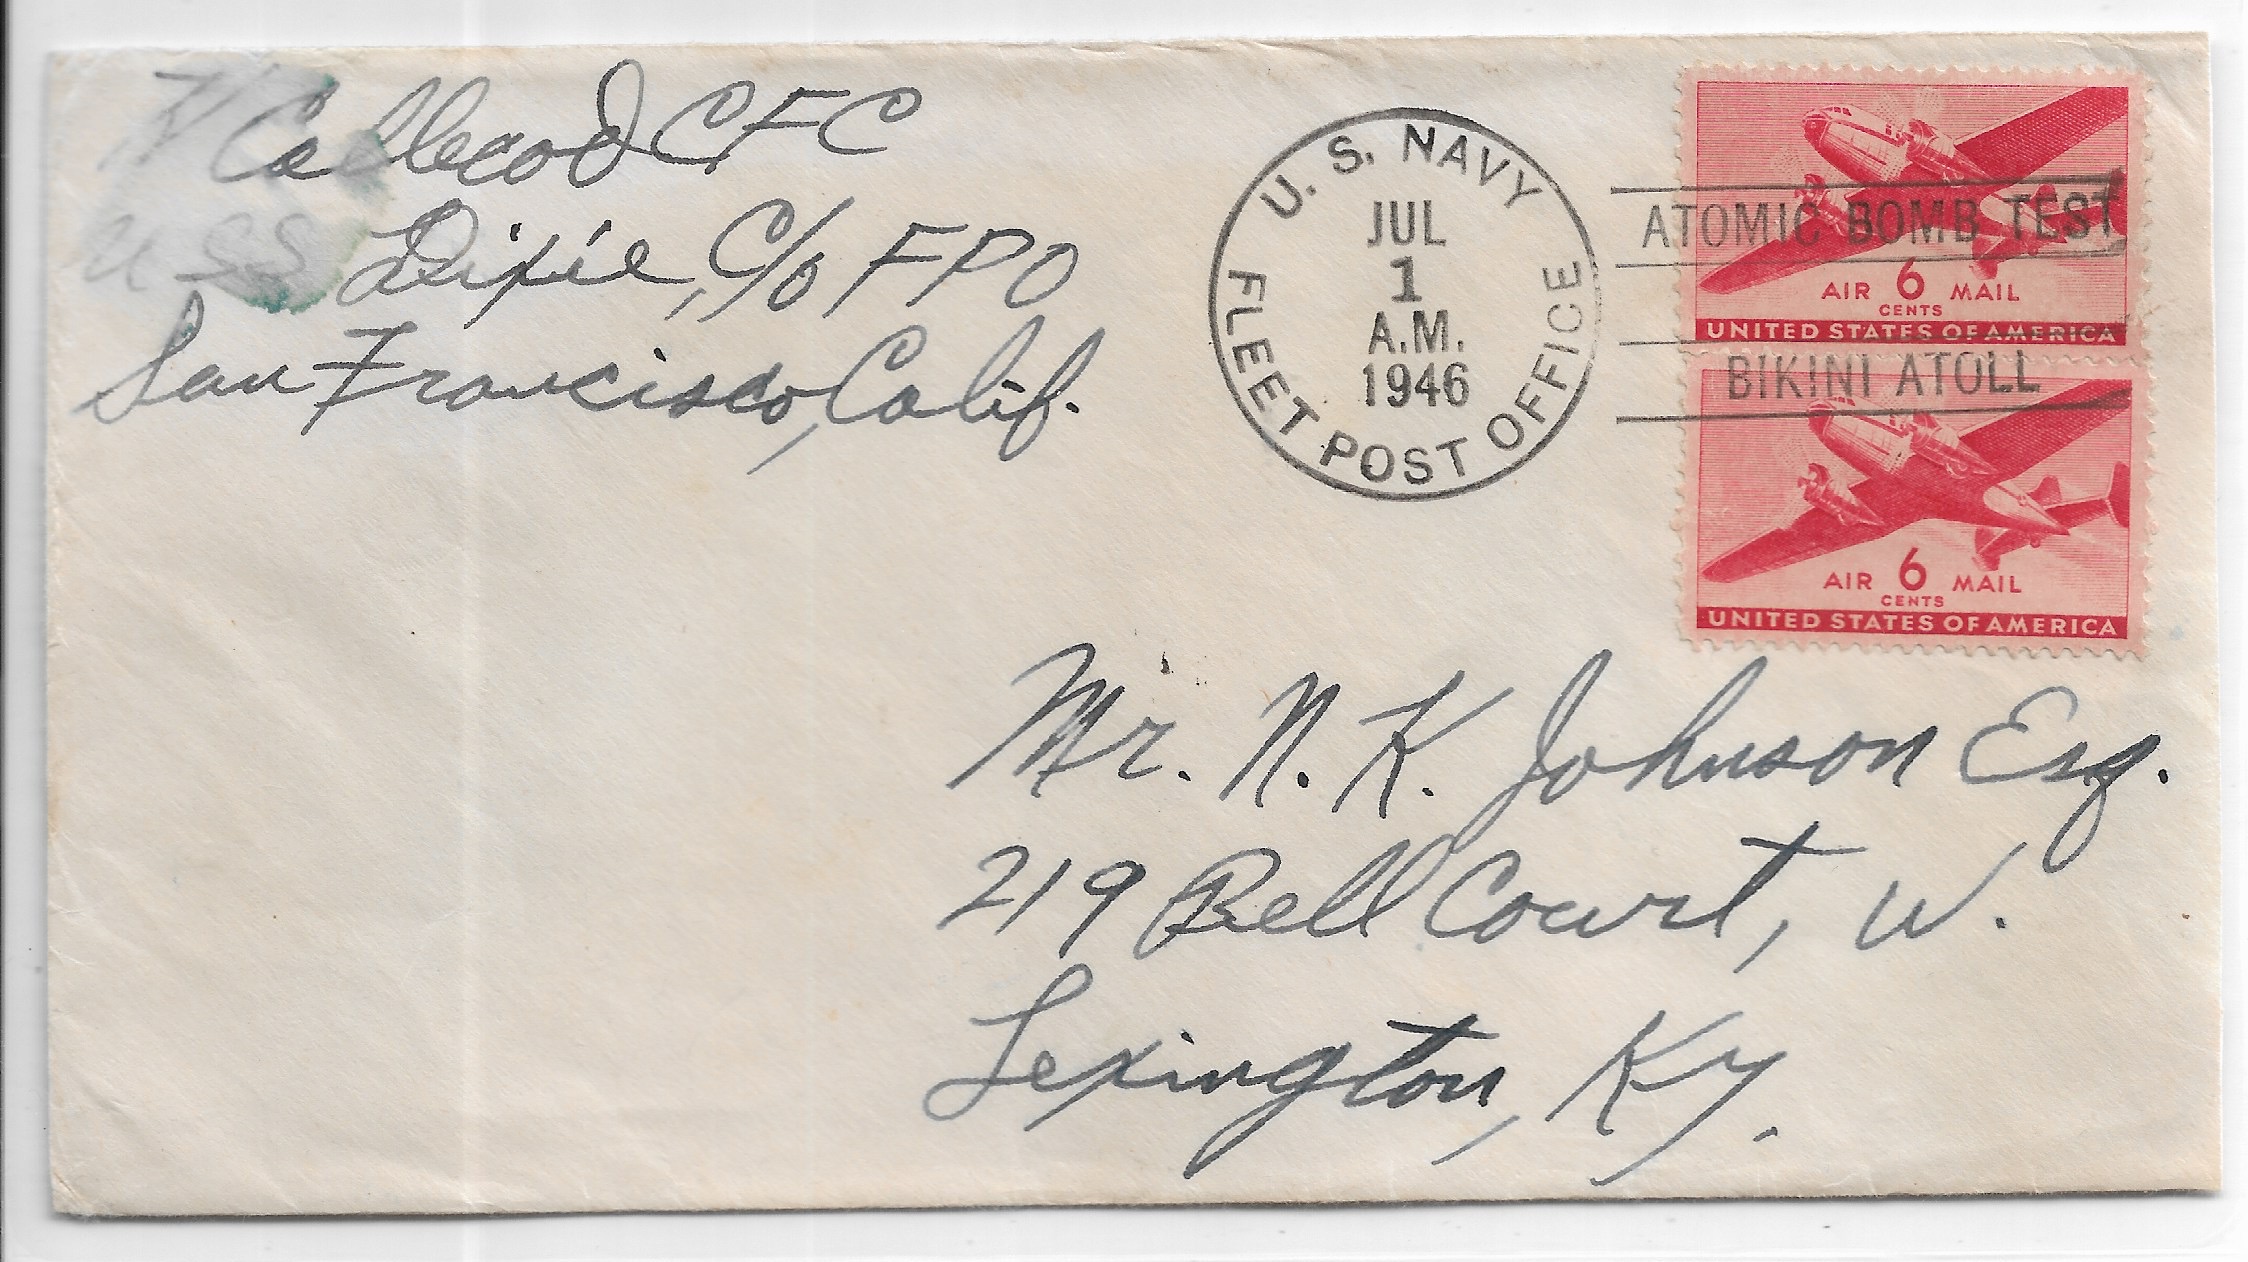 CFC
USS Dixie, C/o FPO
San Francisco, Calif.
U. S. NAVY
JUL
1
A.M.
1946
FLEET POST OFFICE
ATOMIC BOMB TEST
BIKINI ATOLL
AIR 6 MAIL
CENTS
UNITED STATES OF AMERICA
AIR 6 MAIL
CENTS
UNITED STATES OF AMERICA
Mr. N. K. Johnson Esq.
219 Bell Court, W.
Lexington, Ky.